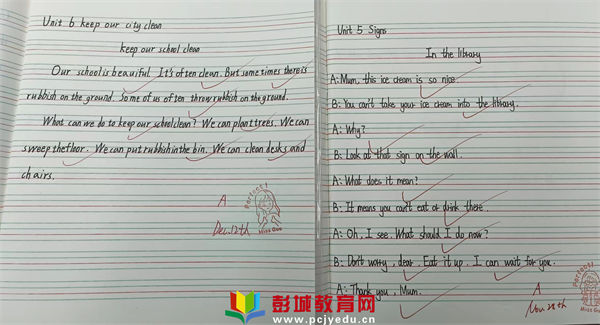 Unit 6 keep our city clean
keep our school clean
Our school is beauiful. It's often clean. But some times there is
rubbish on the ground. Some of us often throw rubbish on the ground.
What can we do to keep our school clean? We can plant trees. We can
sweep the floor. We can put rubbish in the bin. We can clean desks and
chairs.
A
Perfect!
Miss Guo
Dec. 12th
Unit 5 Signs
In the library
A: Mum, this ice cream is so nice.
B: You can't take your ice cream into the library.
A: Why?
B: Look at that sign on the wall.
A: What does it mean?
B: It means you can't eat or drink there.
A: Oh, I see. What should I do now?
B: Don't worry, dear. Eat it up. I can wait for you.
A: Thank you, Mum.
A
Perfect!
Miss Guo
Nov 28th
彭城教育网
www.pcjyedu.cn